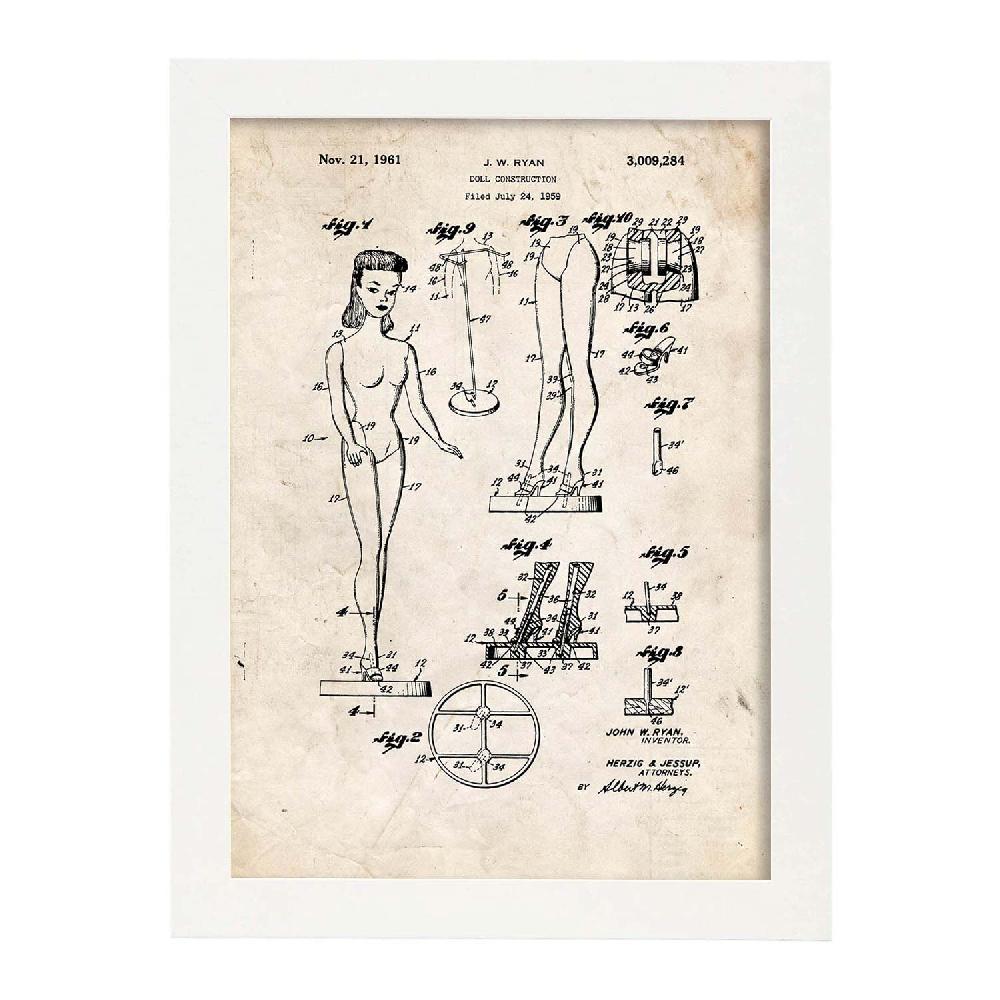 Nov. 21, 1961
J. W. RYAN
3,009,284
DOLL CONSTRUCTION
Filed July 24, 1959
Fig. 1
Fig. 9
Fig. 3
Fig. 10
29 21 22 29
19
13
19
19
19
18
48
48
14
10
16
27
23
23
11
11
24
24
28
26
17 13
17
47
Fig. 6
13
11
44
41
17
17
42
43
16
16
39
29
34
12
Fig. 7
19
19
10
34'
46
31
34
31
44
41
41
12
42
17
17
Fig. 4
Fig. 5
32
32
34
6
36
12
38
4
44
34
31
37
38
39
41
41
12
33
34
31
42
37
43
37
42
5
Fig. 8
41
44
12
42
34'
12'
4
46
31
34
JOHN W. RYAN,
INVENTOR.
Fig. 2
12
31
34
HERZIG & JESSUP,
ATTORNEYS.
BY Albert M. Herzig